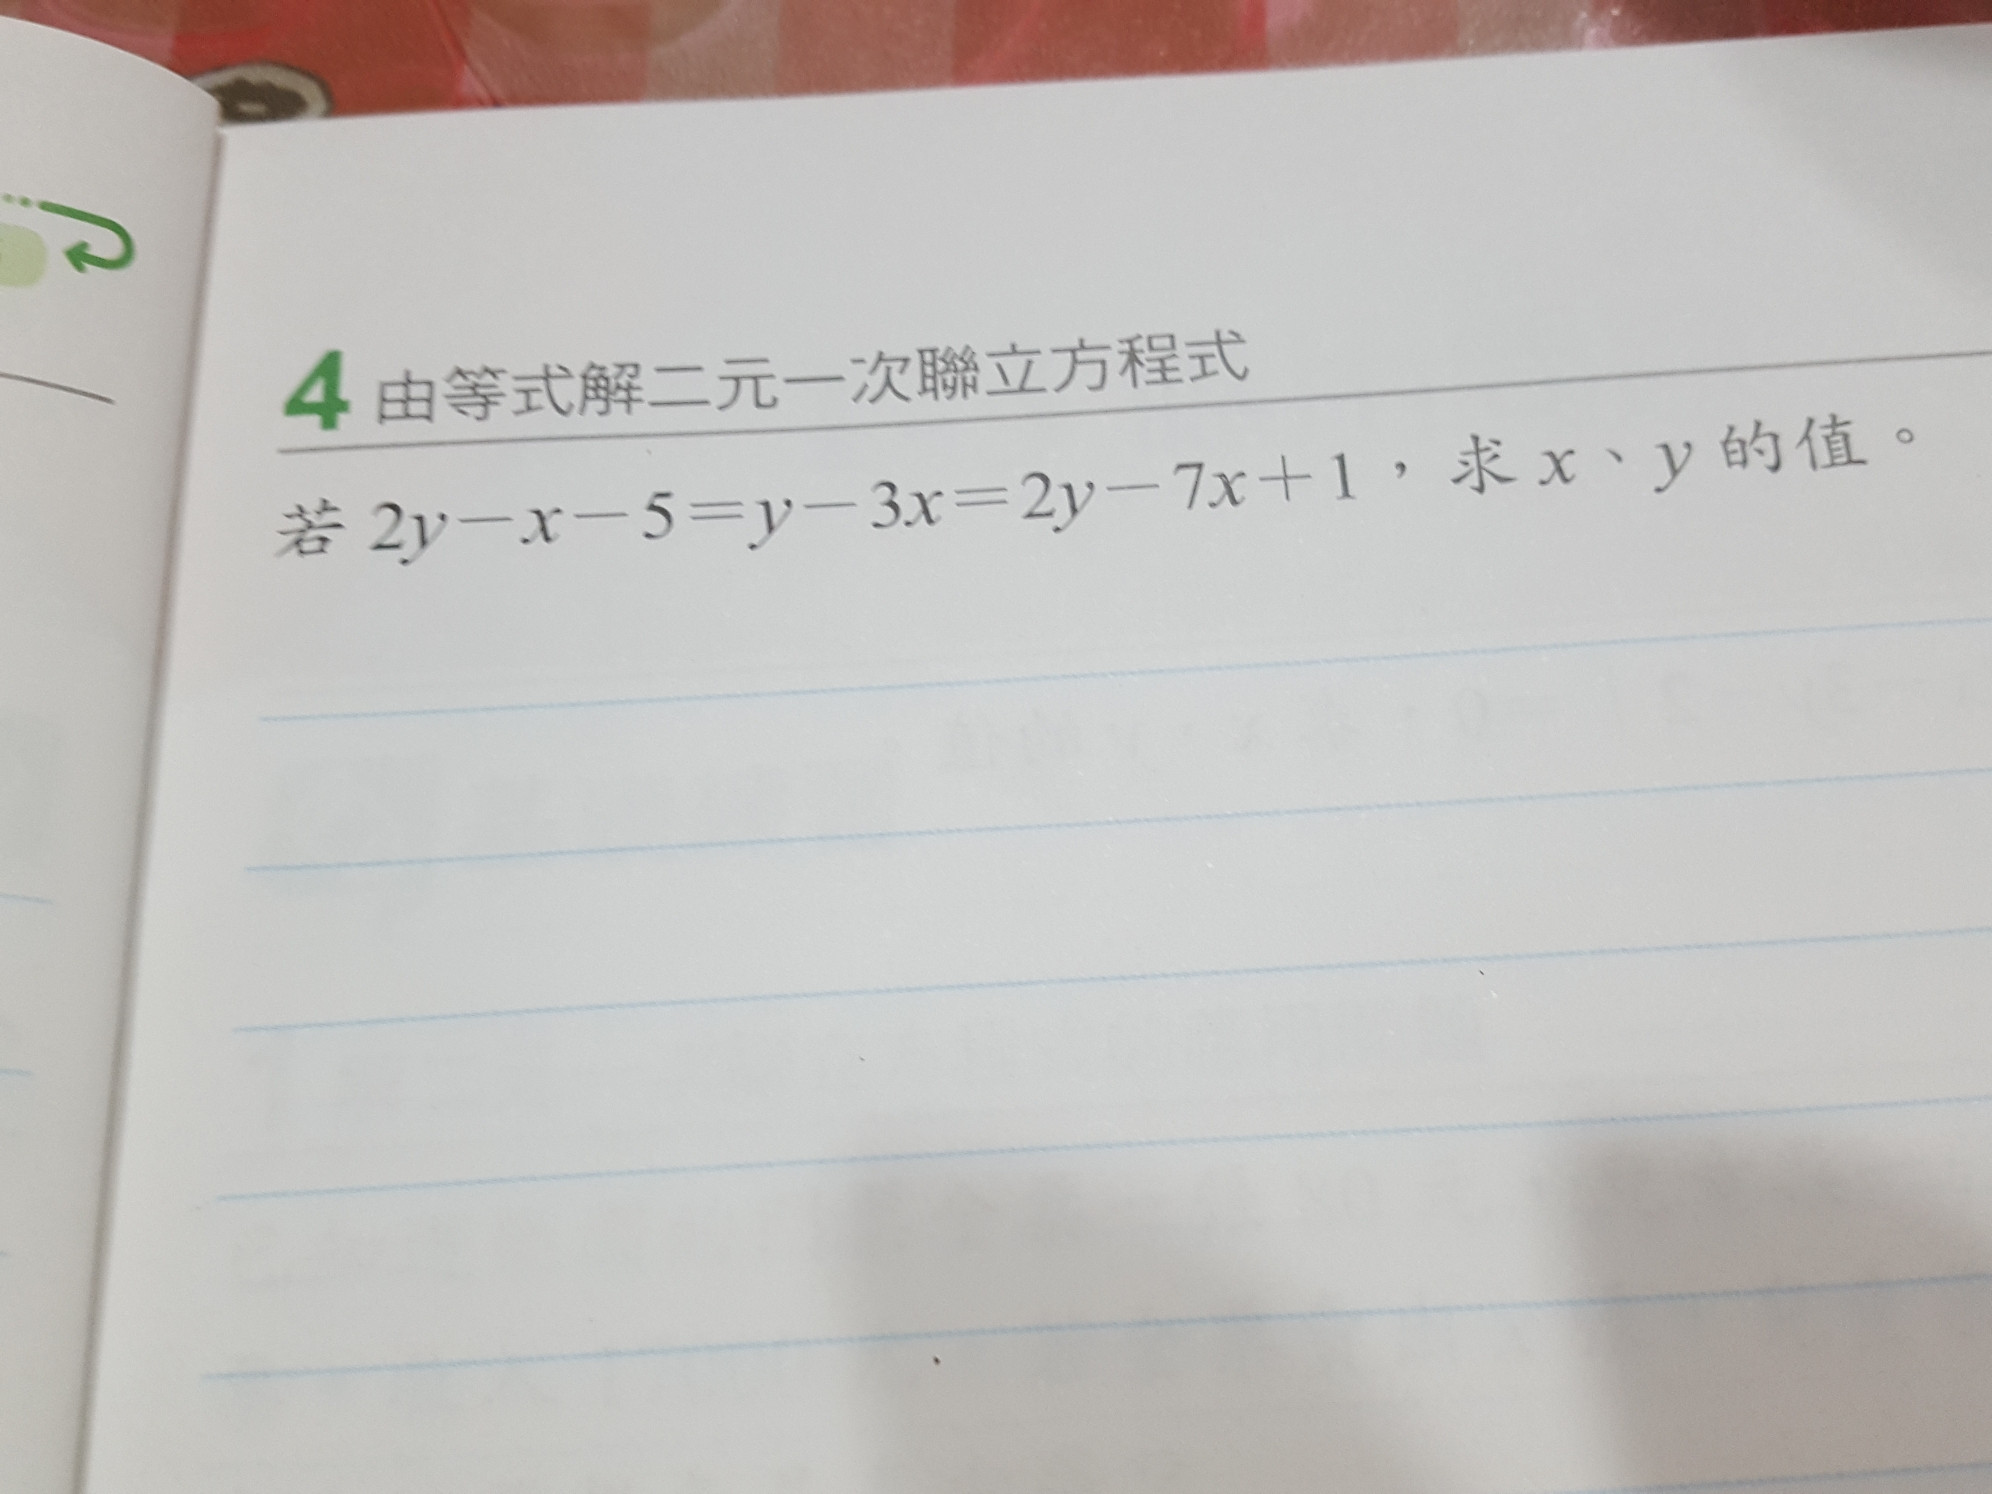 4 由等式解二元一次聯立方程式
若 2y－x－5＝y－3x＝2y－7x＋1，求 x、y 的值。